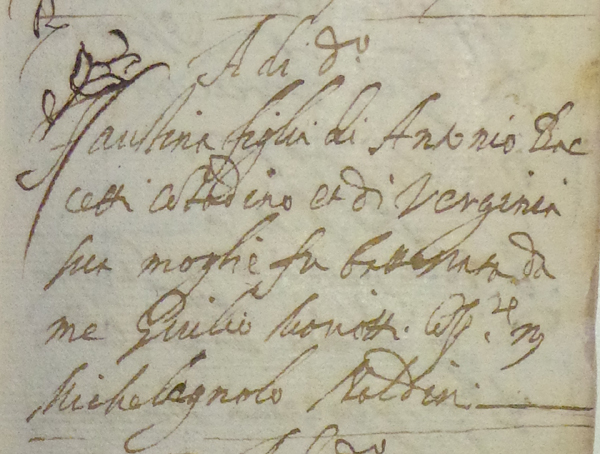 A di d.o
Faustina figlia di Antonio Bac
cetti Cittadino et di Verginia
sua moglie fu battezzata da
me Giulio Comp.re m
Michelagnolo Naldini